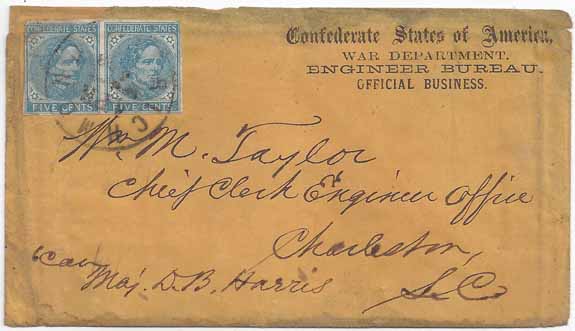 CONFEDERATE STATES CONFEDERATE STATES
FIVE CENTS FIVE CENTS
Confederate States of America,
WAR DEPARTMENT.
ENGINEER BUREAU.
OFFICIAL BUSINESS.
Wm. M. Taylor
Chief Clerk Engineer Office
Charleston,
"Care
Maj. D. B. Harris S. C.